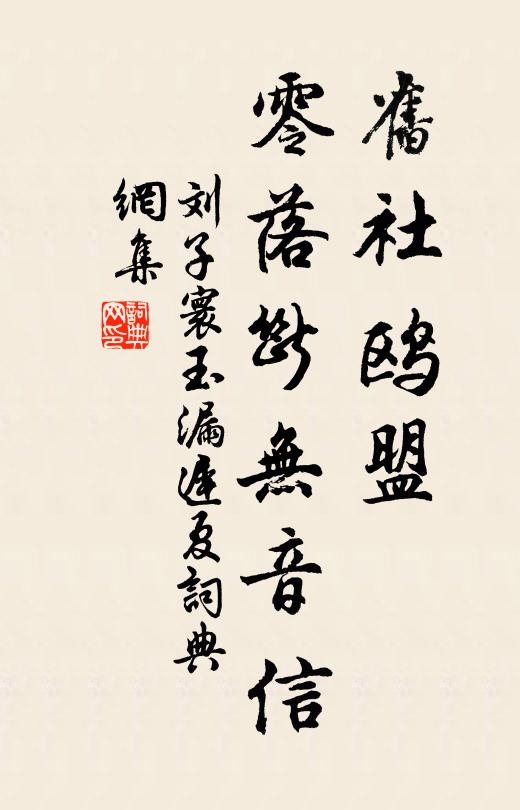 舊社鷗盟
零落斷無音信
刘子寰玉漏遲夏詞典
網集
詞典
网印